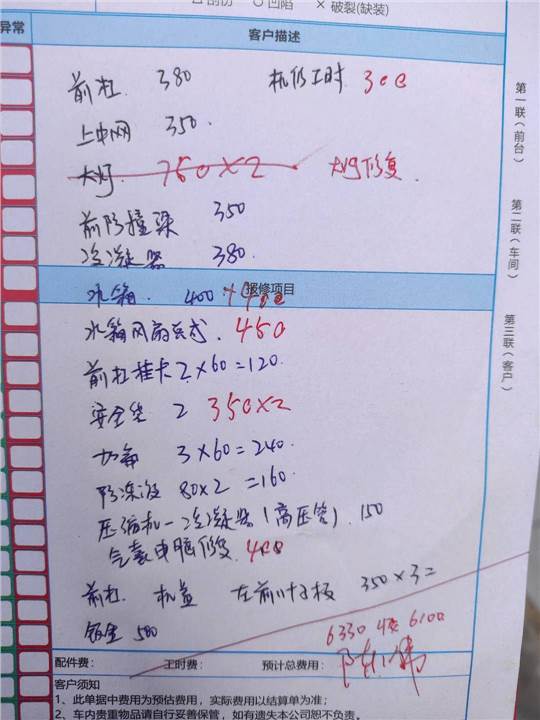 凹陷 × 破裂(缺装)
异常 客户描述
前杠 380 机修工时 300
上中网 350.
大灯 750×2 大灯修复
前防撞梁 350
冷凝器 380.
水箱. 400
报修项目
水箱风扇总成. 450
前杠挂卡 2×60=120.
安全坐 2 350×2
加氟 3×60=240.
防冻液 80×2 =160.
压缩机一冷凝器(高压管). 150
气囊电脑修复 400
前杠 机盖 左前叶子板 350×3=
钣金 500
6330 收 6100
配件费: 工时费: 预计总费用:
客户须知
1、此单据中费用为预估费用,实际费用以结算单为准;
2、车内贵重物品请自行妥善保管,如有遗失本公司恕不负责。
第一联(前台)
第二联(车间)
第三联(客户)